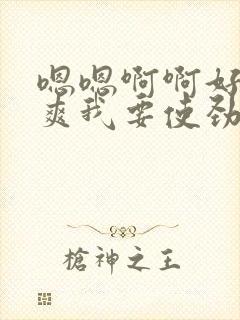 嗯嗯啊啊好
爽我要使劲
槍神之王